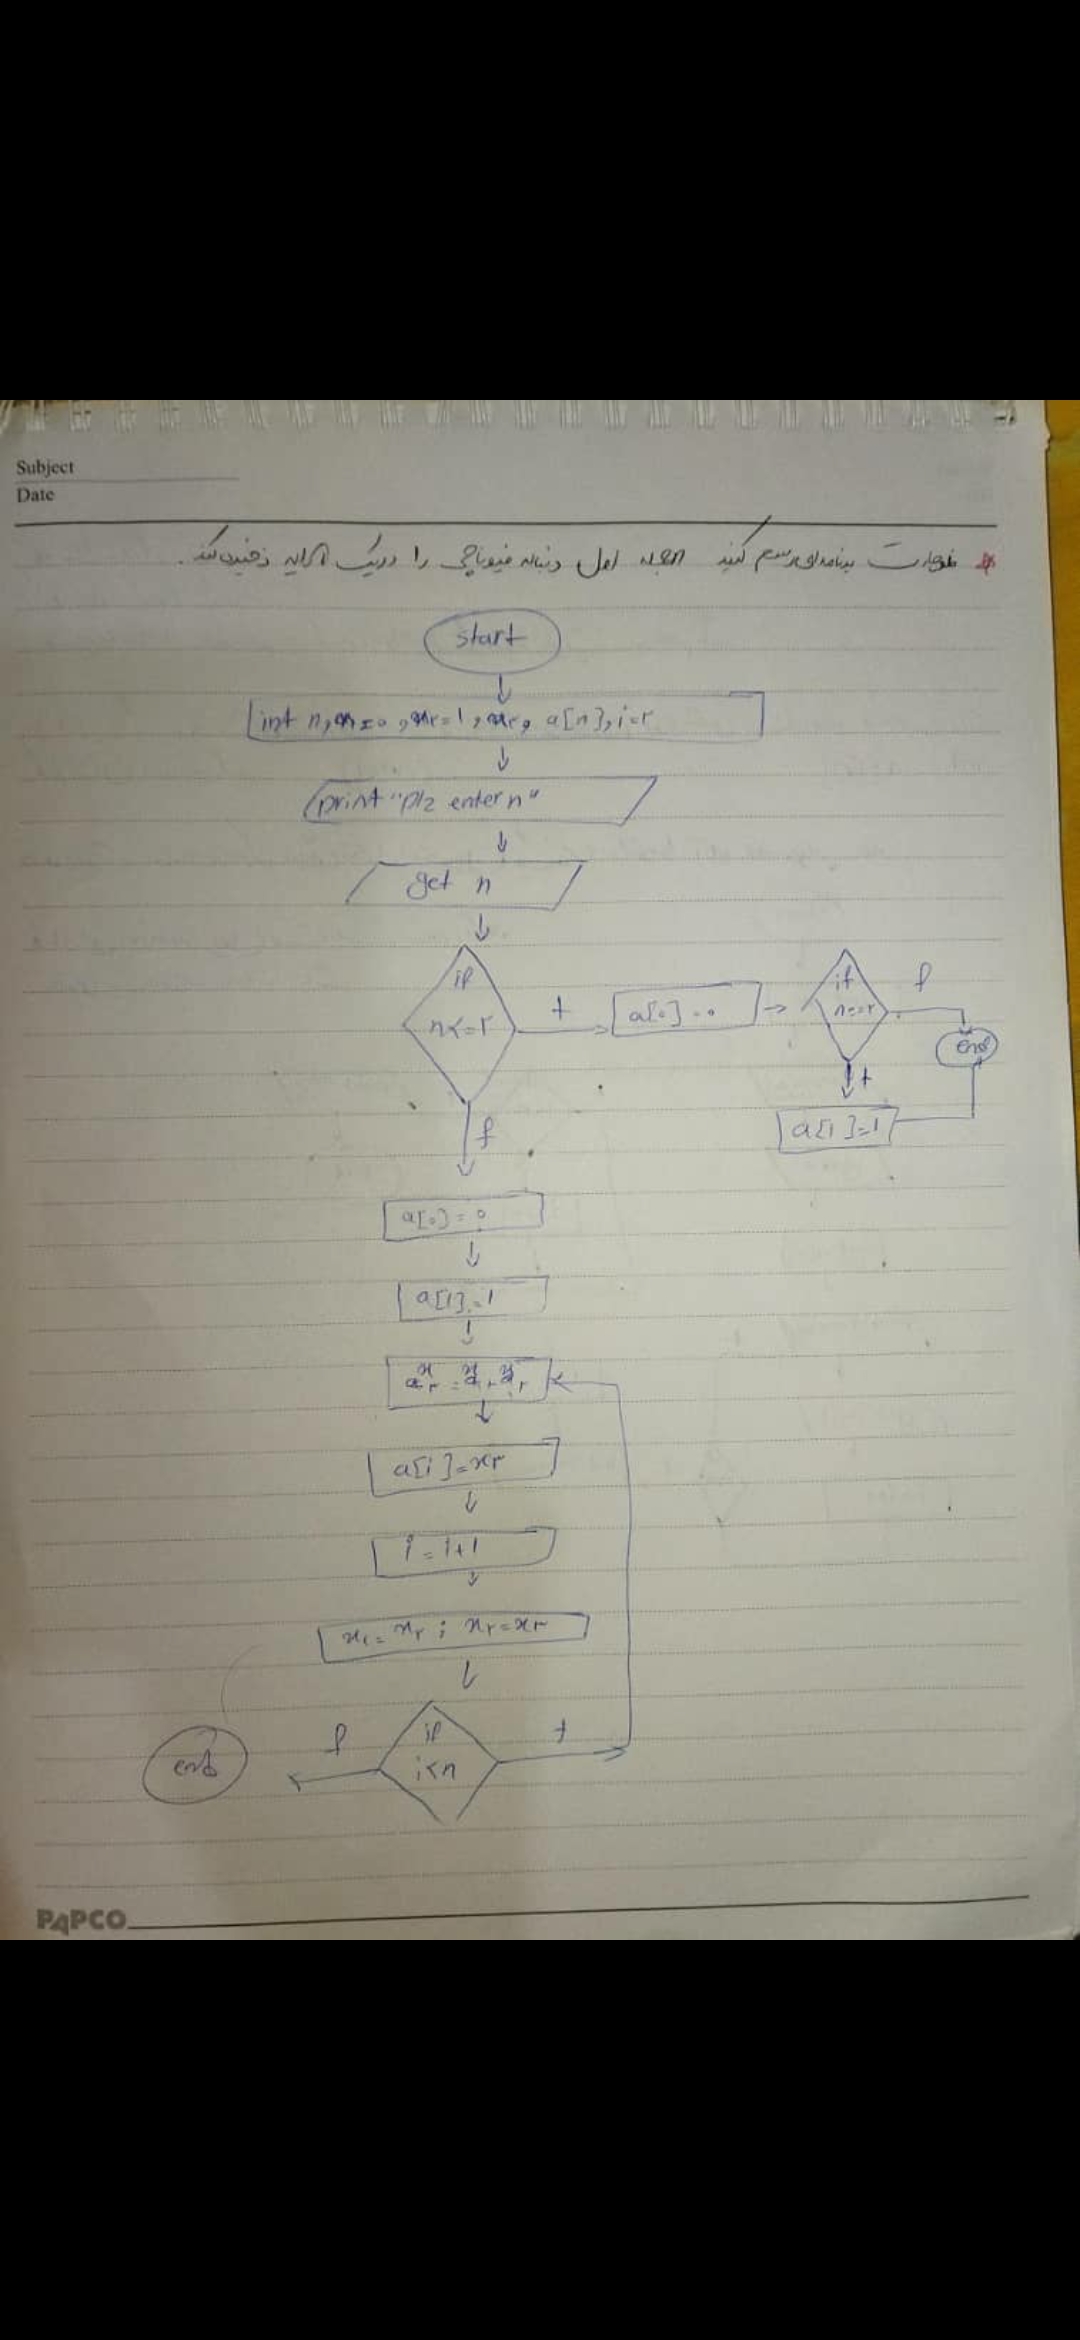 Subject
Date
فلوچارت برنامه‌ای رسم کنید جمله اول دنباله فیبوناچی را در یک آرایه ذخیره کند.
start
int n, x۱=۰, x۲=1, x۳, a[n], i=۲
print "plz enter n"
get n
if
n<=۲
t
a[۰]=۰
if
n==۲
f
end
t
a[1]=1
f
a[۰]=۰
a[1]=1
x۳=x۱+x۲
a[i]=x۳
i=i+1
x۱=x۲; x۲=x۳
if
i<n
t
f
end
PAPCO